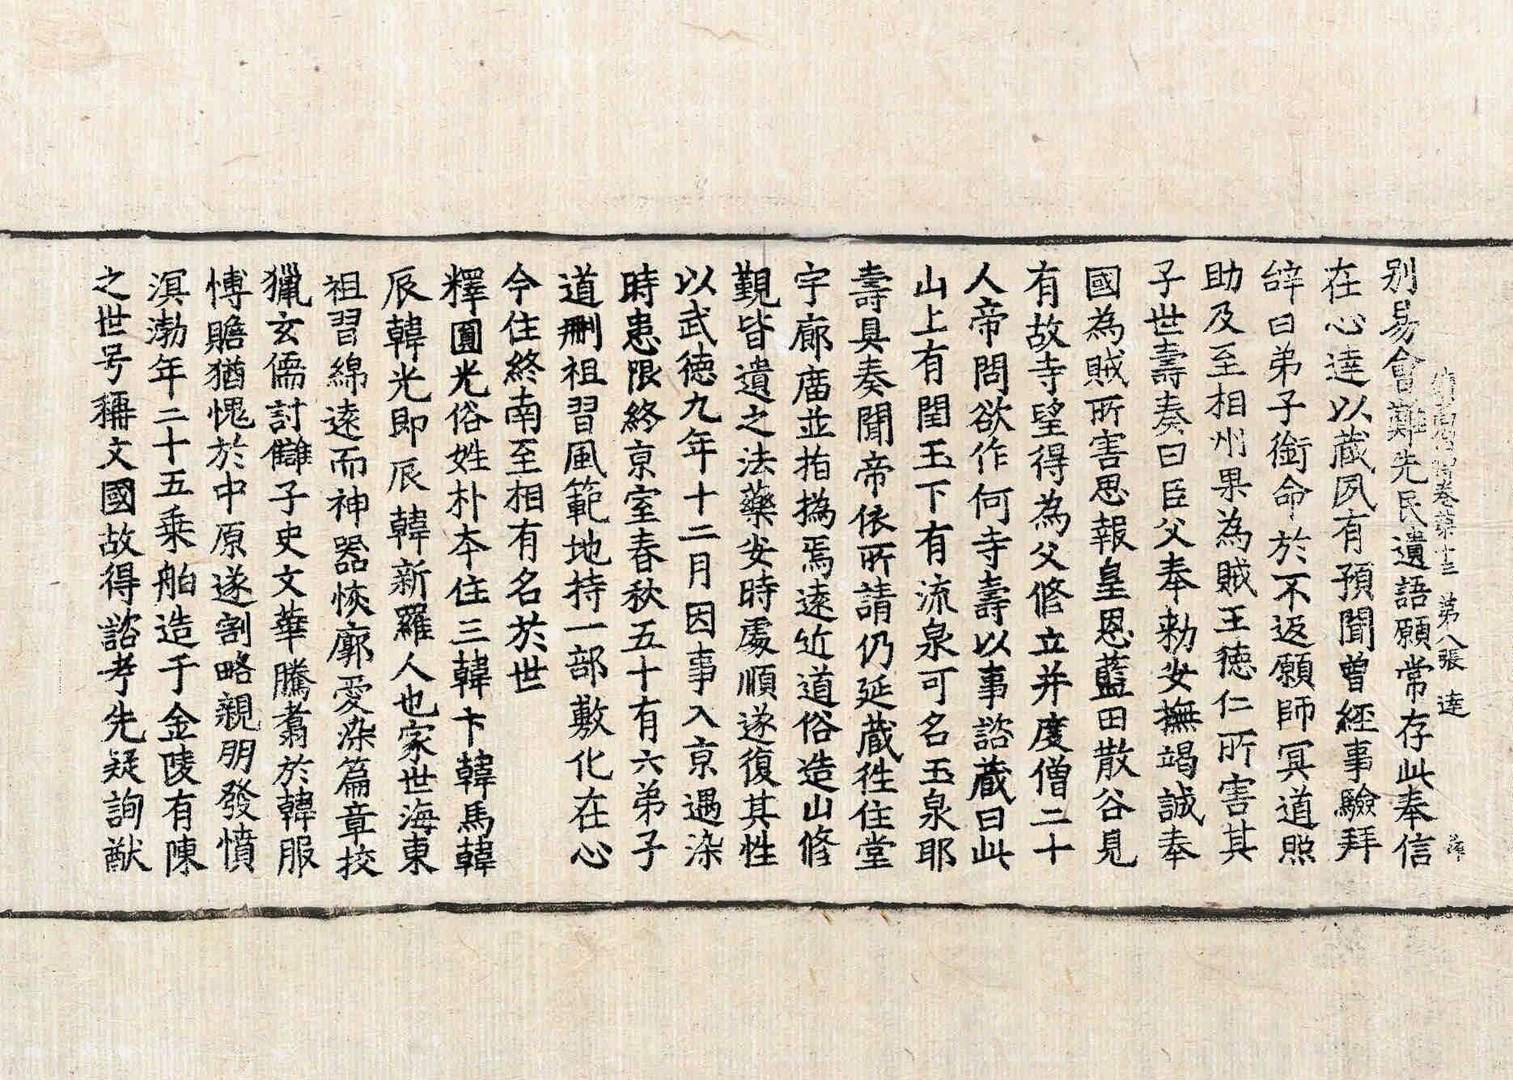 續高僧傳卷第十三 第八張 達
別易會難先民遺語願常存此奉信
在心達以蔵夙有預聞曽經事驗拜
辝曰弟子銜命於不返願師冥道照
助及至相州果為賊王徳仁所害其
子世壽奏曰臣父奉勑安撫竭誠奉
國為賊所害思報皇恩藍田散谷見
有故寺望得為父修立并度僧二十
人帝問欲作何寺壽以事諮蔵曰此
山上有閏玉下有流泉可名玉泉耶
壽具奏聞帝依所請仍延蔵徃住堂
宇廊廡並指撝焉逺近道俗造山修
覲皆遺之法藥安時處順遂復其性
以武徳九年十二月因事入京遇染
時患限終京室春秋五十有六弟子
道刪祖習風範地持一部敷化在心
今住終南至相有名於世
釋圓光俗姓朴夲住三韓卞韓馬韓
辰韓光即辰韓新羅人也家世海東
祖習綿逺而神噐恢廓愛染篇章挍
獵玄儒討讎子史文華騰翥於韓服
愽贍猶愧於中原遂割略親朋發憤
溟渤年二十五乗舶造于金陵有陳
之世号稱文國故得諮考先疑詢猷